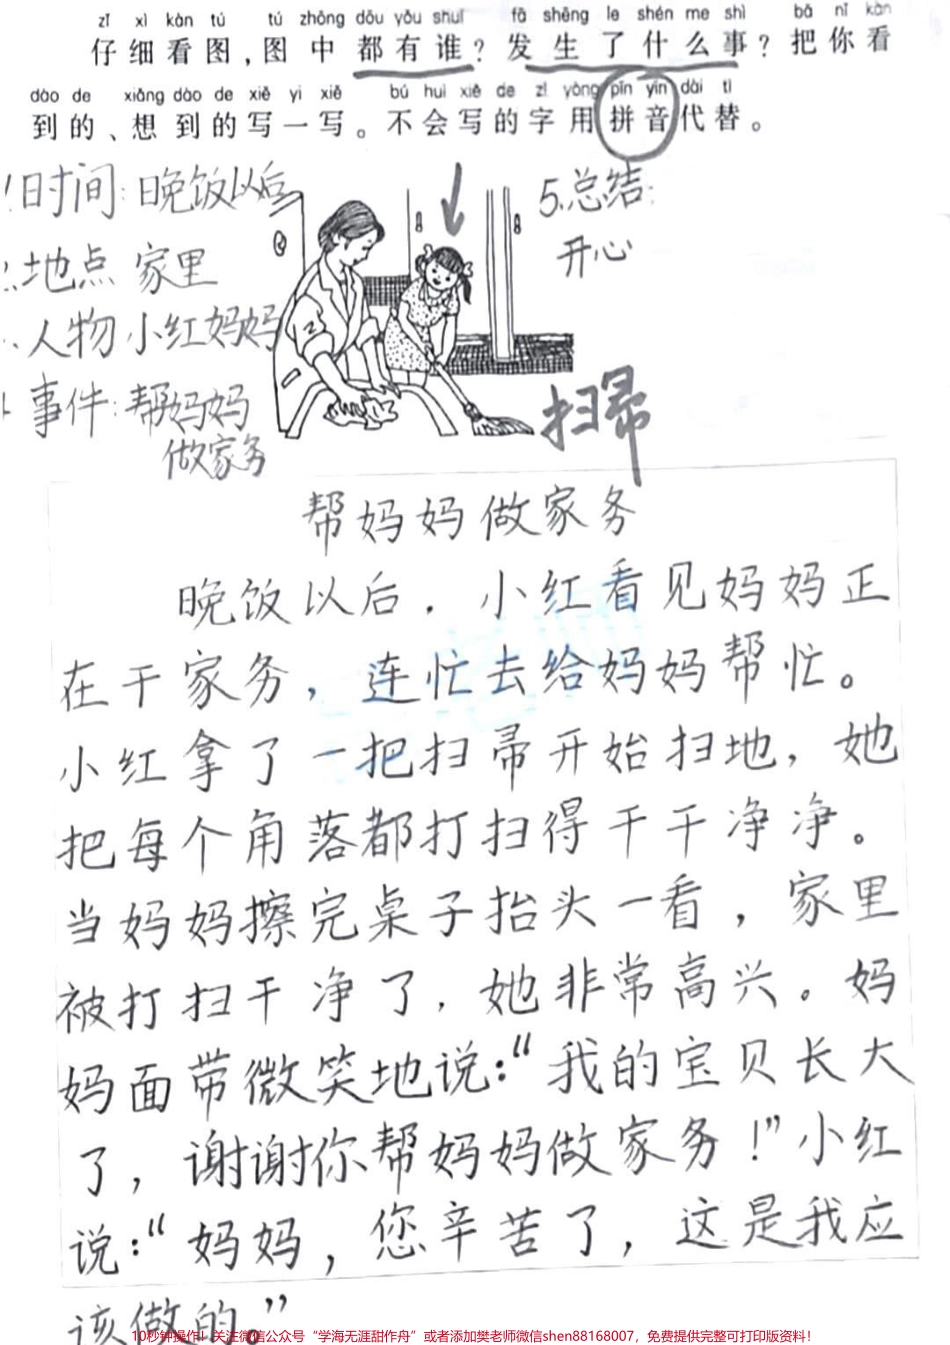 zǐ xì kàn tú tú zhōng dōu yǒu shuí fā shēng le shén me shì bǎ nǐ kàn
仔细看图，图中都有谁？发生了什么事？把你看
dào de xiǎng dào de xiě yi xiě bú huì xiě de zì yòng pīn yīn dài tì
到的、想到的写一写。不会写的字用拼音代替。
时间：晚饭以后
地点 家里
人物 小红妈妈
事件：帮妈妈
做家务
5.总结：
开心
扫帚
帮妈妈做家务
晚饭以后，小红看见妈妈正
在干家务，连忙去给妈妈帮忙。
小红拿了一把扫帚开始扫地，她
把每个角落都打扫得干干净净。
当妈妈擦完桌子抬头一看，家里
被打扫干净了，她非常高兴。妈
妈面带微笑地说：“我的宝贝长大
了，谢谢你帮妈妈做家务！”小红
说：“妈妈，您辛苦了，这是我应
该做的。”
10秒钟操作！关注微信公众号“学海无涯甜作舟”或者添加樊老师微信shen88168007，免费提供完整可打印版资料！